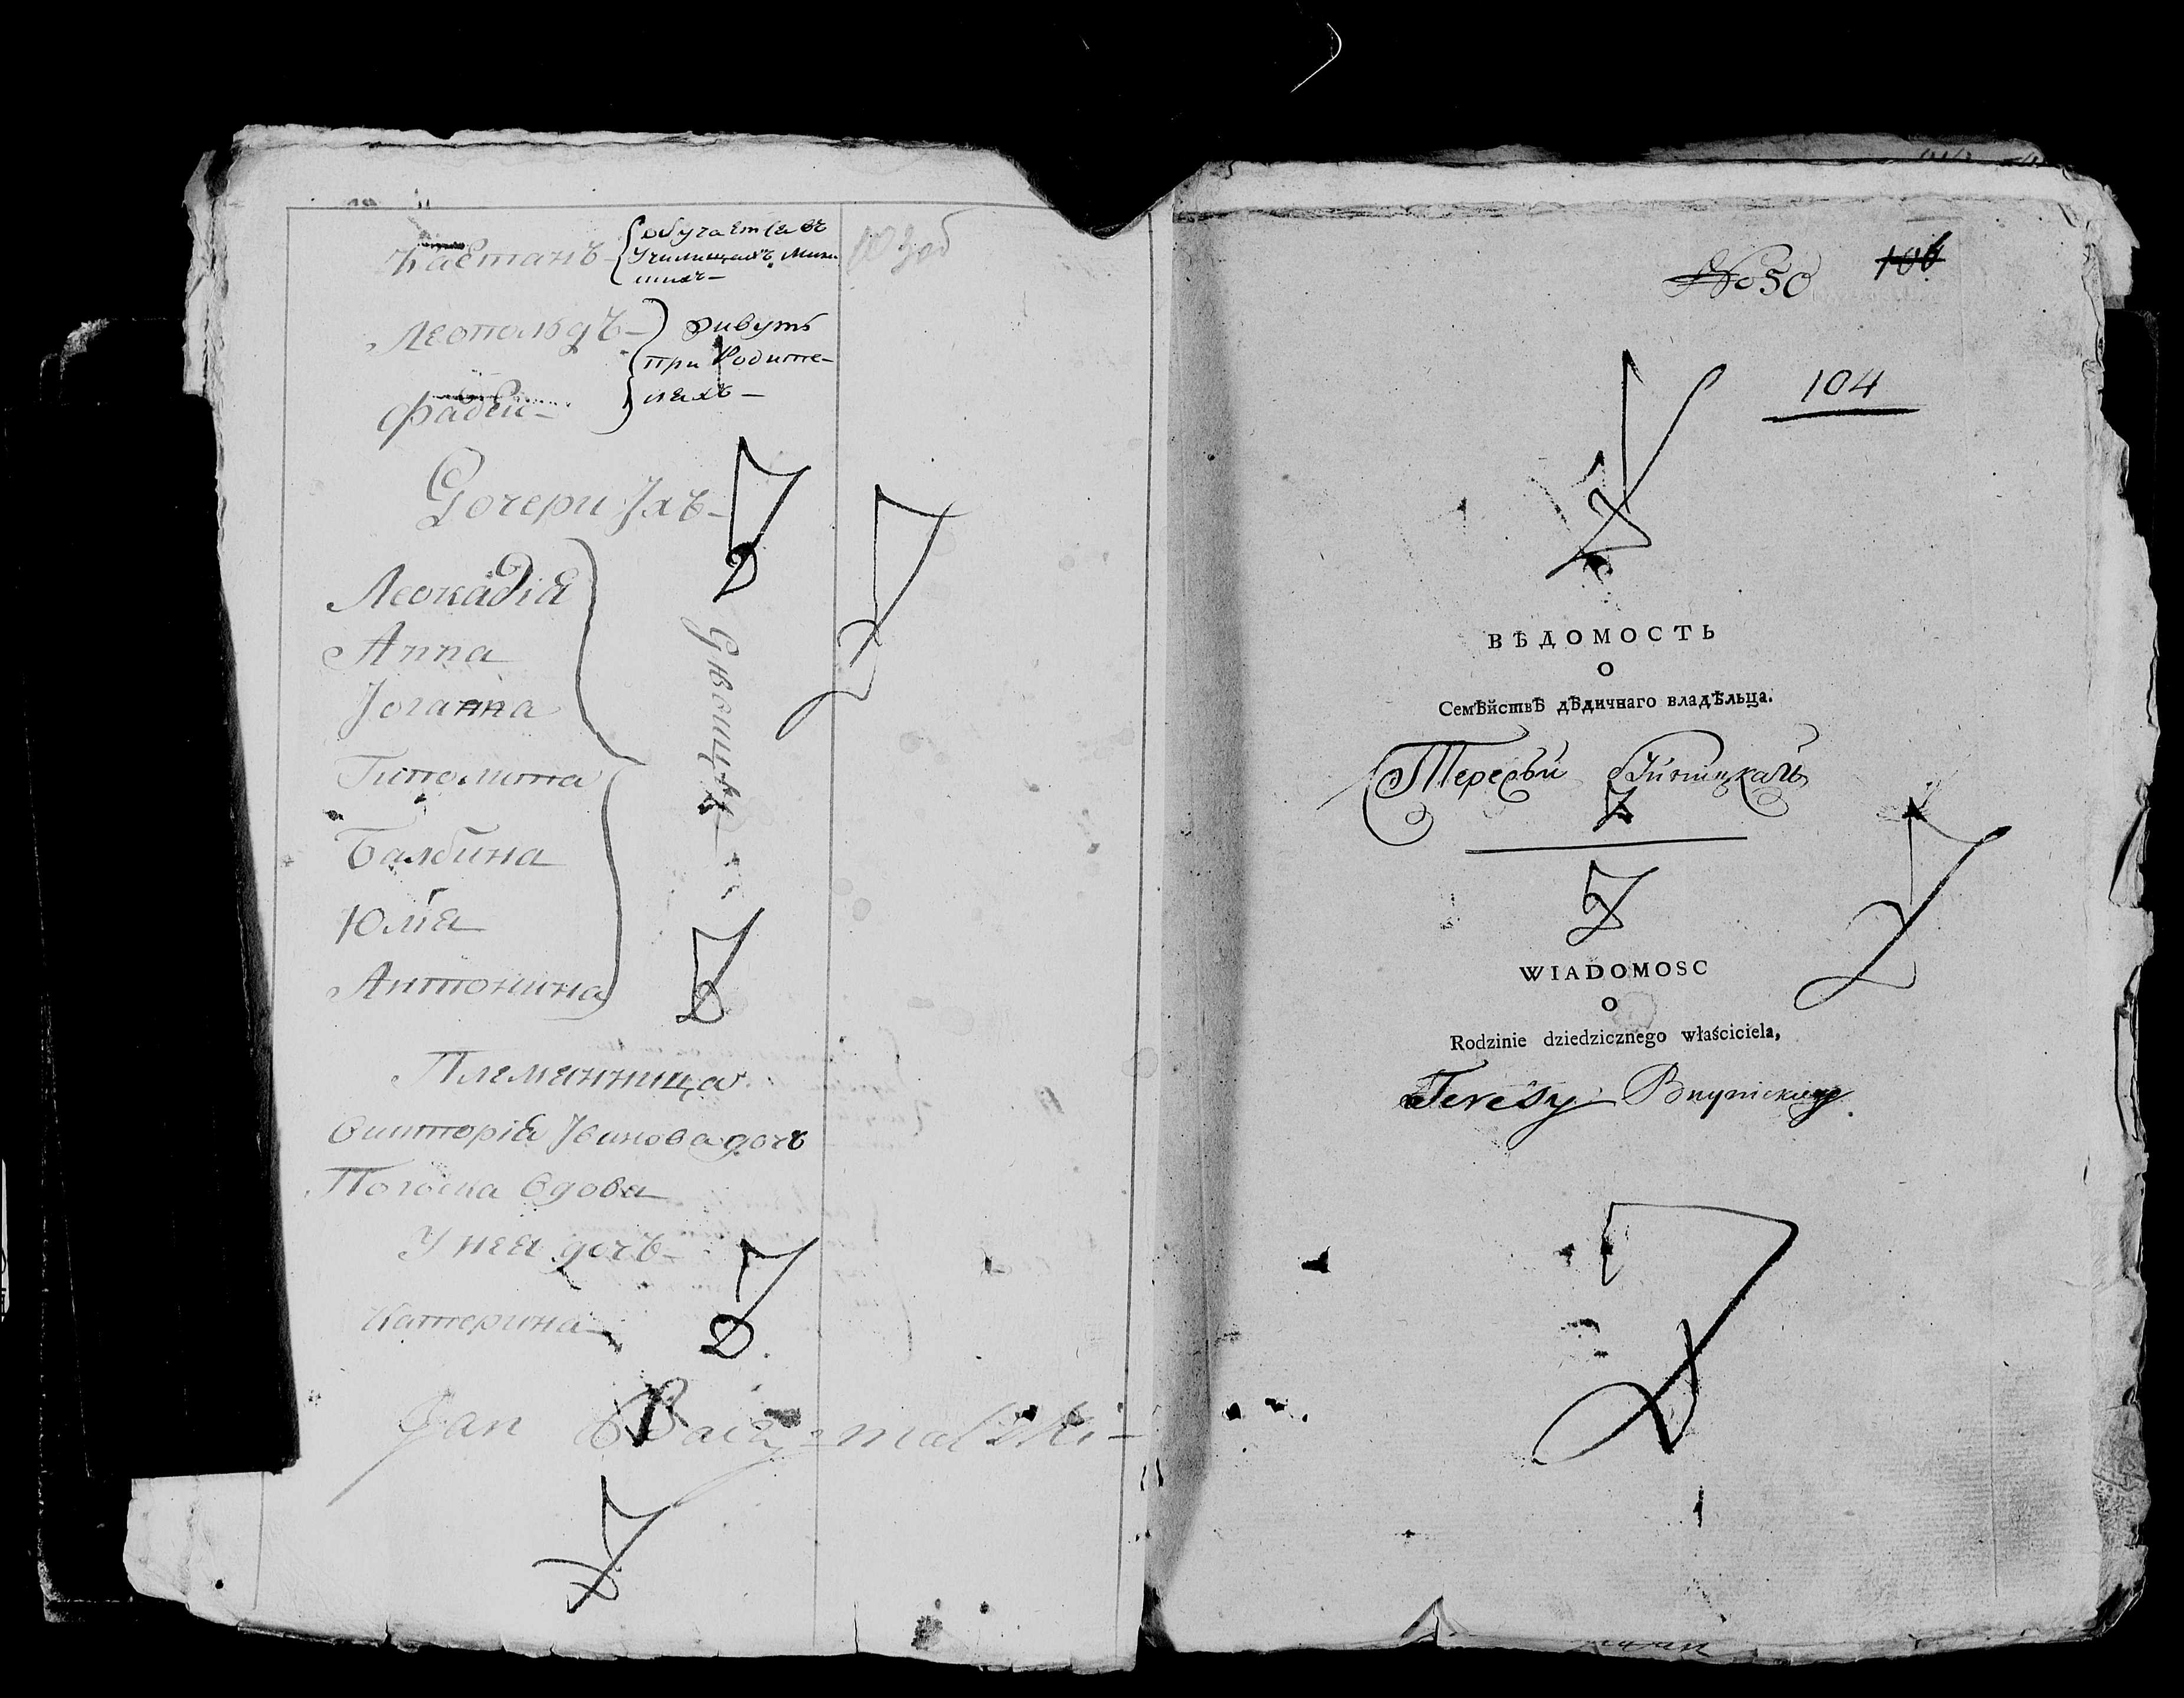 Каетанъ
обучается въ
Училищахъ Мин
шихъ
Леопольдъ
живутъ
при Родите-
ляхъ
Фадей
Дочери Ихъ
Леокадія
Anna
Іоганна
Гиполита
Балбина
Юлія
Антонина
Девицы
Племянница
Викторія Іванова дочь
вдова
У нея дочь
Катерина
Jan
No 50
104
ВѢДОМОСТЬ
О
Семѣйствѣ дѣдичнаго владѣльца.
WIADOMOSC
O
Rodzinie dziedzicznego właściciela,
Teresy